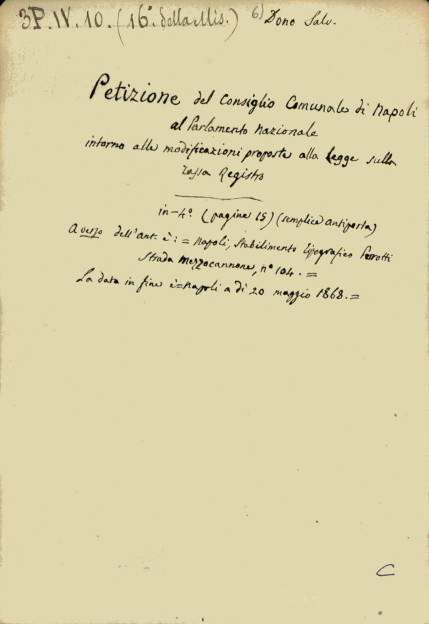 3P.IV.10. (16° della Mis.) 6) Dono Salv.
Petizione del Consiglio Comunale di Napoli
al Parlamento Nazionale
intorno alle modificazioni proposte alla Legge sulla
Tassa Registro
in-4° (pagine 15) (semplice antiporta)
A verso dell'ant. è: = Napoli, Stabilimento tipografico Perrotti
Strada Mezzocannone, n° 104. =
La data in fine è = Napoli a dì 20 maggio 1868. =
C